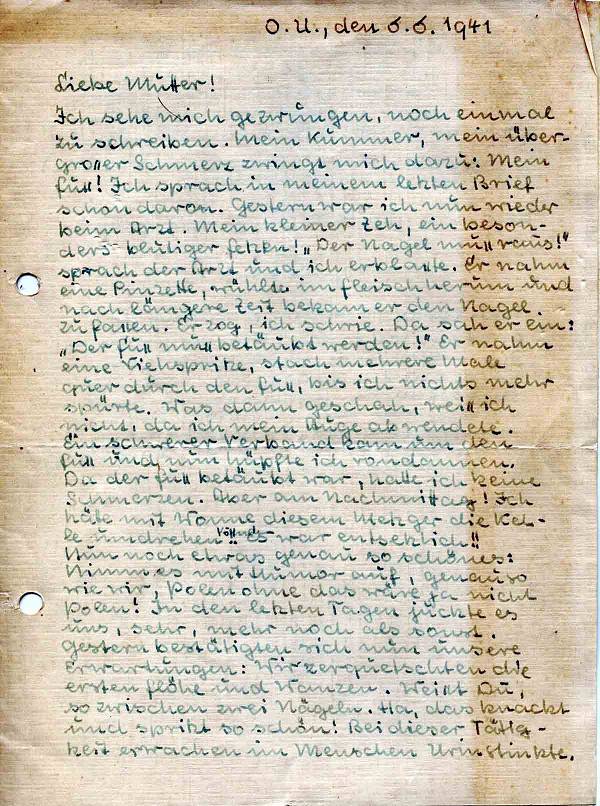 O.U., den 6.6.1941
Liebe Mutter!
Ich sehe mich gezwungen, noch einmal
zu schreiben. Mein Kummer, mein über-
großer Schmerz zwingt mich dazu: Mein
Fuß! Ich sprach in meinem letzten Brief
schon davon. Gestern war ich nun wieder
beim Arzt. Mein kleiner Zeh, ein beson-
ders blutiger Fetzen! „Der Nagel muß raus!"
sprach der Arzt und ich erblaßte. Er nahm
eine Pinzette, wühlte im Fleisch herum und
nach längere Zeit bekam er den Nagel
zu faßen. Er zog, ich schrie. Da sah er ein:
„Der Fuß muß betäubt werden!" Er nahm
eine Viehspritze, stach mehrere Male
quer durch den Fuß, bis ich nichts mehr
spürte. Was dann geschah, weiß ich
nicht, da ich mein Auge abwendete.
Ein schwerer Verband kam um den
Fuß und nun hüpfte ich vondannen.
Da der Fuß betäubt war, hatte ich keine
Schmerzen. Aber am Nachmittag! Ich
hätte mit Wonne diesem Metzger die Keh-
le umdrehen können! Es war entsetzlich!!
Nun noch etwas genau so schönes:
Nimm es mit Humor auf, genau so
wie wir, Polen ohne das wäre ja nicht
Polen! In den letzten Tagen juckte es
uns, sehr, mehr noch als sonst.
Gestern bestätigten sich nun unsere
Erwartungen: Wir zerquetschten die
ersten Flöhe und Wanzen. Weißt Du,
so zwischen zwei Nägeln. Ha, das knackt
und spritzt so schön! Bei dieser Tätig-
keit erwachen im Menschen Urinstinkte.